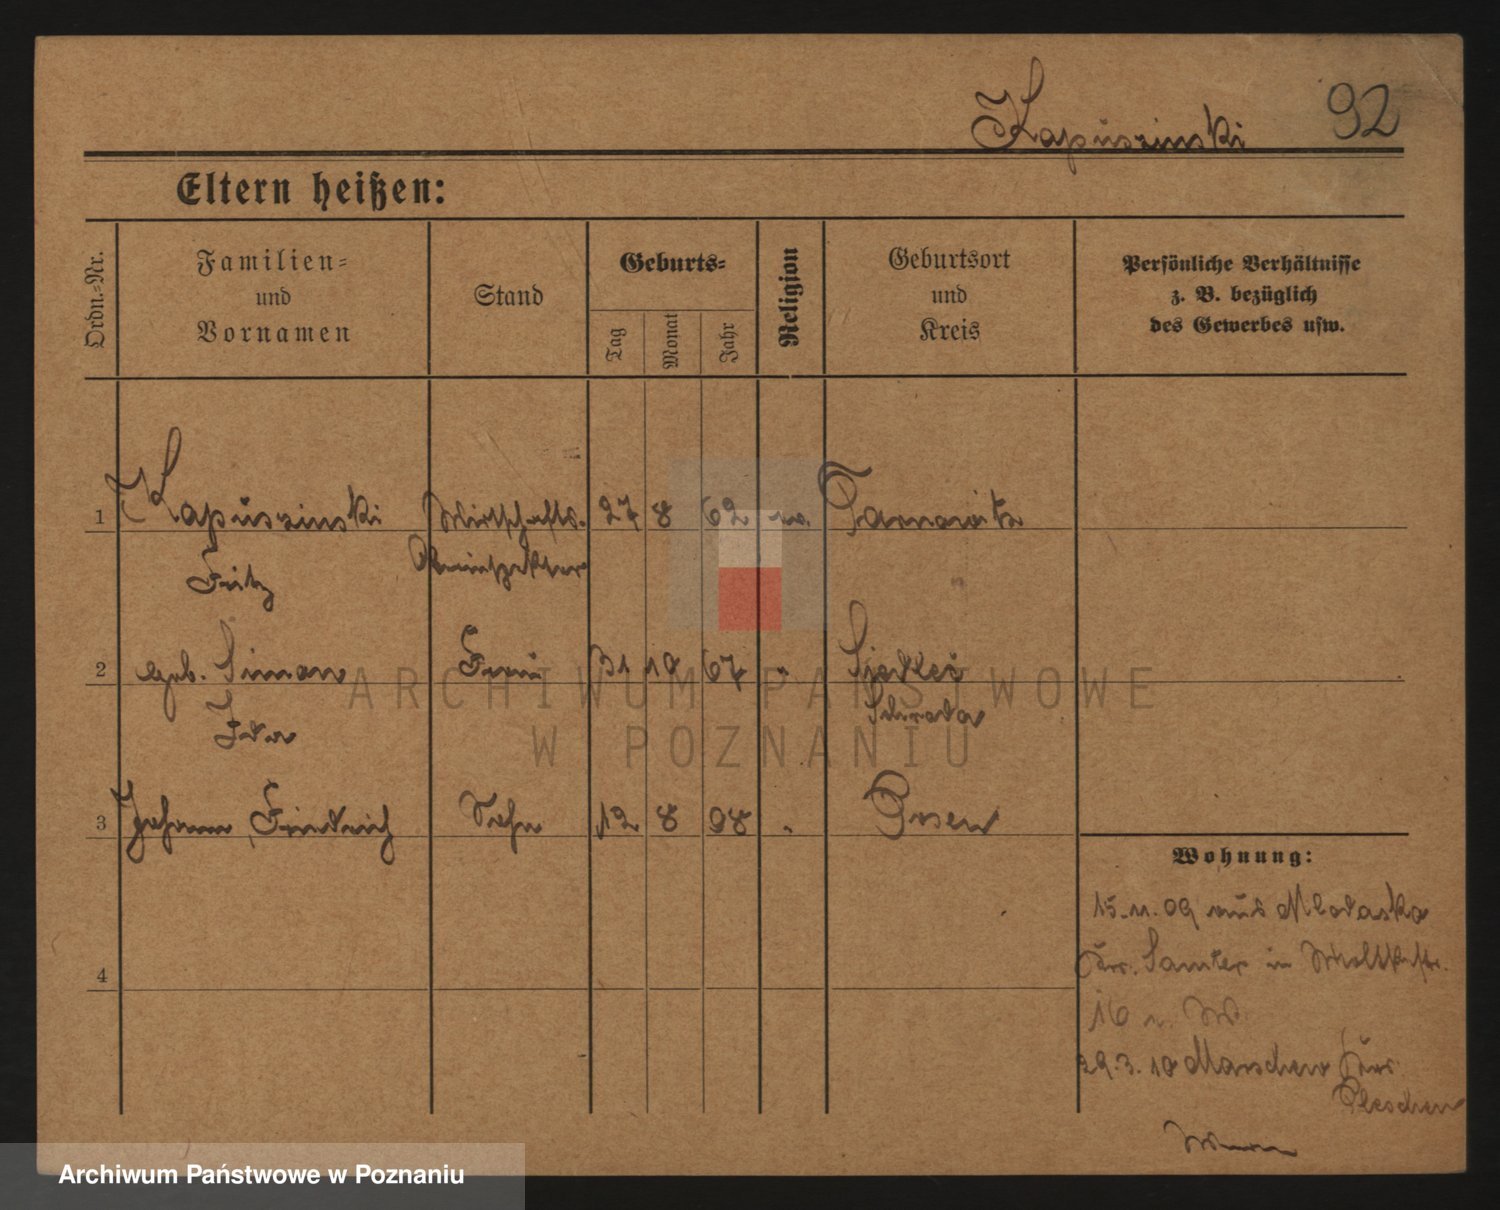 Kapuszinski 92
Eltern heißen:
Ordn.-Nr.
Familien-
und
Vornamen
Stand
Geburts-
Tag
Monat
Jahr
Religion
Geburtsort
und
Kreis
Persönliche Verhältnisse
z. B. bezüglich
des Gewerbes usw.
1 Kapuszinski Wirtschafts- 27 8 62 Tarnowitz
Fritz Oberinspektor
2 geb. Simon Frau 31 10 67 "
Ida Schroda
3 Johann Friedrich Sohn 12 8 98 " Posen
Wohnung:
15.11.09 aus
Krs. Samter in Moltkestr.
16 W.
29.3.10 Marschew Krs.
Pleschen
4
ARCHIWUM PAŃSTWOWE
W POZNANIU
Archiwum Państwowe w Poznaniu